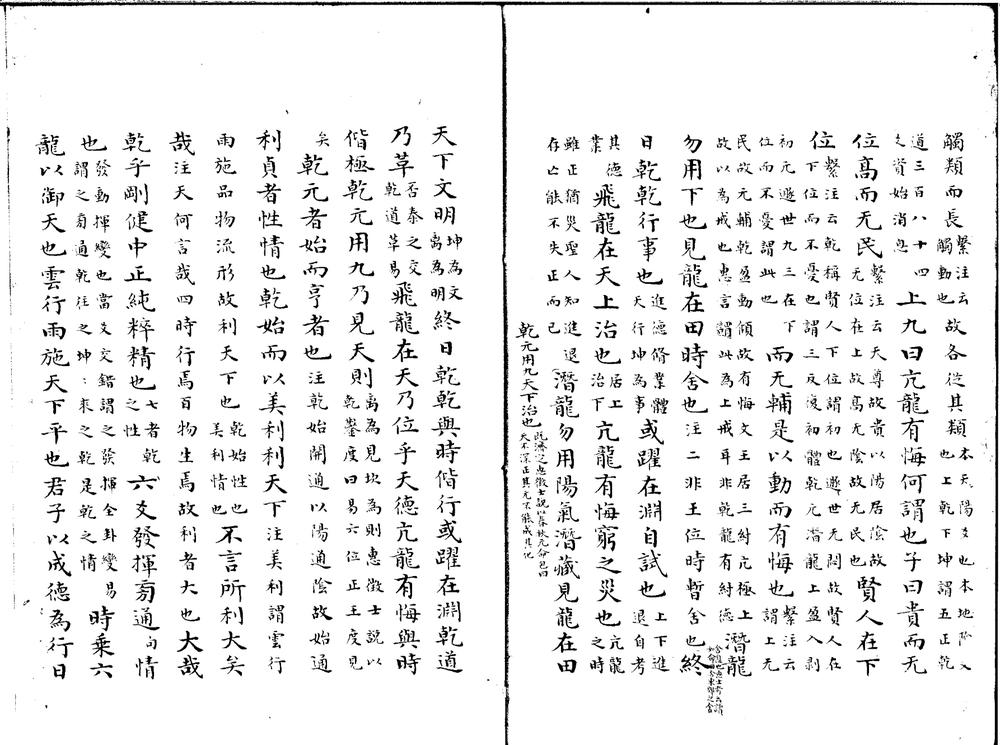 觸類而長繫注云觸動也故各從其類本天陽爻也本地陰爻也上乾下坤謂五正乾
道三百八十四爻資始消息上九曰亢龍有悔何謂也子曰貴而无
位高而无民繫注云天尊故貴以陽居陰故无位在上故高无陰故无民也賢人在下
位繫注云乾稱賢人下位謂初也遯世无悶故賢人在下位而不憂也謂三反復初體乾元潛龍上盈入剝
初元遯世九三在下位而不憂謂此也而无輔是以動而有悔也繫注云謂上无
民故元輔乾盈動傾故有悔文王居三紂亢極上故以為戒也惠言謂此為上戒耳非乾龍有紂德潛龍
勿用下也見龍在田時舍也注二非王位時暫舍也終
日乾乾行事也進德脩業體天行坤為事或躍在淵自試也上下進退自考
其德業飛龍在天上治也居上治下亢龍有悔窮之災也亢龍之時
雖正猶災聖人知進退存亡能不失正而已潛龍勿用陽氣潛藏見龍在田
乾元用九天下治也既濟定惠徵士說以春秋元命包曰天不深正其元不能成其化
天下文明坤為文離為明終日乾乾與時偕行或躍在淵乾道
乃革否泰之交乾道革易飛龍在天乃位乎天德亢龍有悔與時
偕極乾元用九乃見天則離為見坎為則惠徵士說以乾鑿度曰易六位正王度見
矣乾元者始而亨者也注乾始開通以陽通陰故始通
利貞者性情也乾始而以美利利天下注美利謂雲行
雨施品物流形故利天下也乾始性也美利情也不言所利大矣
哉注天何言哉四時行焉百物生焉故利者大也大哉
乾乎剛健中正純粹精也七者乾之性六爻發揮旁通句情
也發動揮變也當爻交錯謂之發揮全卦變易謂之旁通乾往之坤坤來之乾是乾之情時乘六
龍以御天也雲行雨施天下平也君子以成德為行日